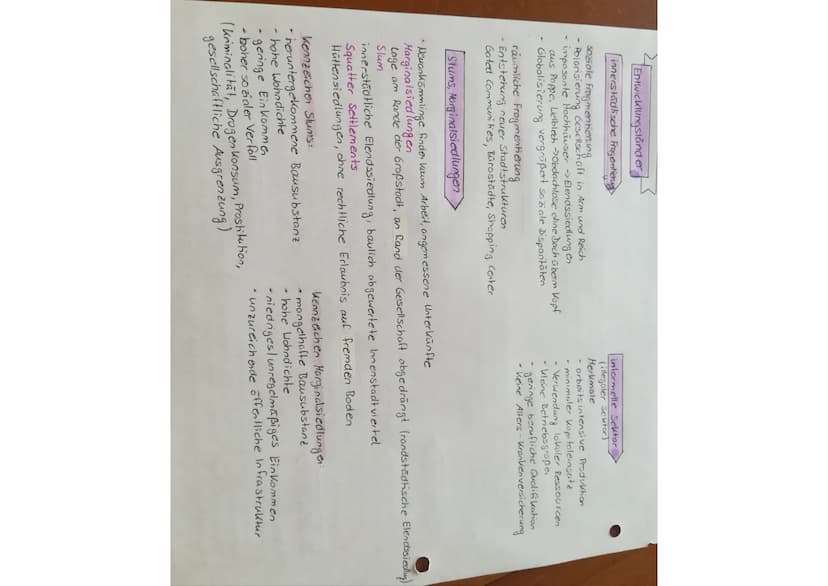 Entwicklungsländer
innerstädtische Fragmentierung
soziale Fragmentierung
• Polarisierung Gesellschaft in Arm und Reich
• imposante Hochhäuser -> Elendssiedlungen
aus Pappe, Wellblech -> Obdachlose ohne Dach überm Kopf
• Globalisierung vergrößert soziale Disparitäten
räumliche Fragmentierung
• Entstehung neuer Stadtstrukturen
Gated Communities, Bürostädte, Shopping Center
informelle Sektor
(illegaler Sektor)
Merkmale
• arbeitsintensive Produktion
• minimaler Kapitaleinsatz
• Verwendung lokaler Ressourcen
• kleine Betriebsgrößen
• geringe berufliche Qualifikation
• keine Alters-, Krankenversicherung
Slums, Marginalsiedlungen
• Neuankömmlinge finden kaum Arbeit, angemessene Unterkünfte
Marginalsiedlungen
Lage am Rande der Großstadt, an Rand der Gesellschaft abgedrängt (randstädtische Elendssiedlung)
Slum
innerstädtische Elendssiedlung, baulich abgewertete Innenstadtviertel
Squatter Settlements
Hüttensiedlungen, ohne rechtliche Erlaubnis auf fremden Boden
Kennzeichen Slums:
• heruntergekommene Bausubstanz
• hohe Wohndichte
• geringe Einkommen
• hoher sozialer Verfall
(Kriminalität, Drogenkonsum, Prostitution,
gesellschaftliche Ausgrenzung)
Kennzeichen Marginalsiedlungen:
• mangelhafte Bausubstanz
• hohe Wohndichte
• niedriges/unregelmäßiges Einkommen
• unzureichende öffentliche Infrastruktur